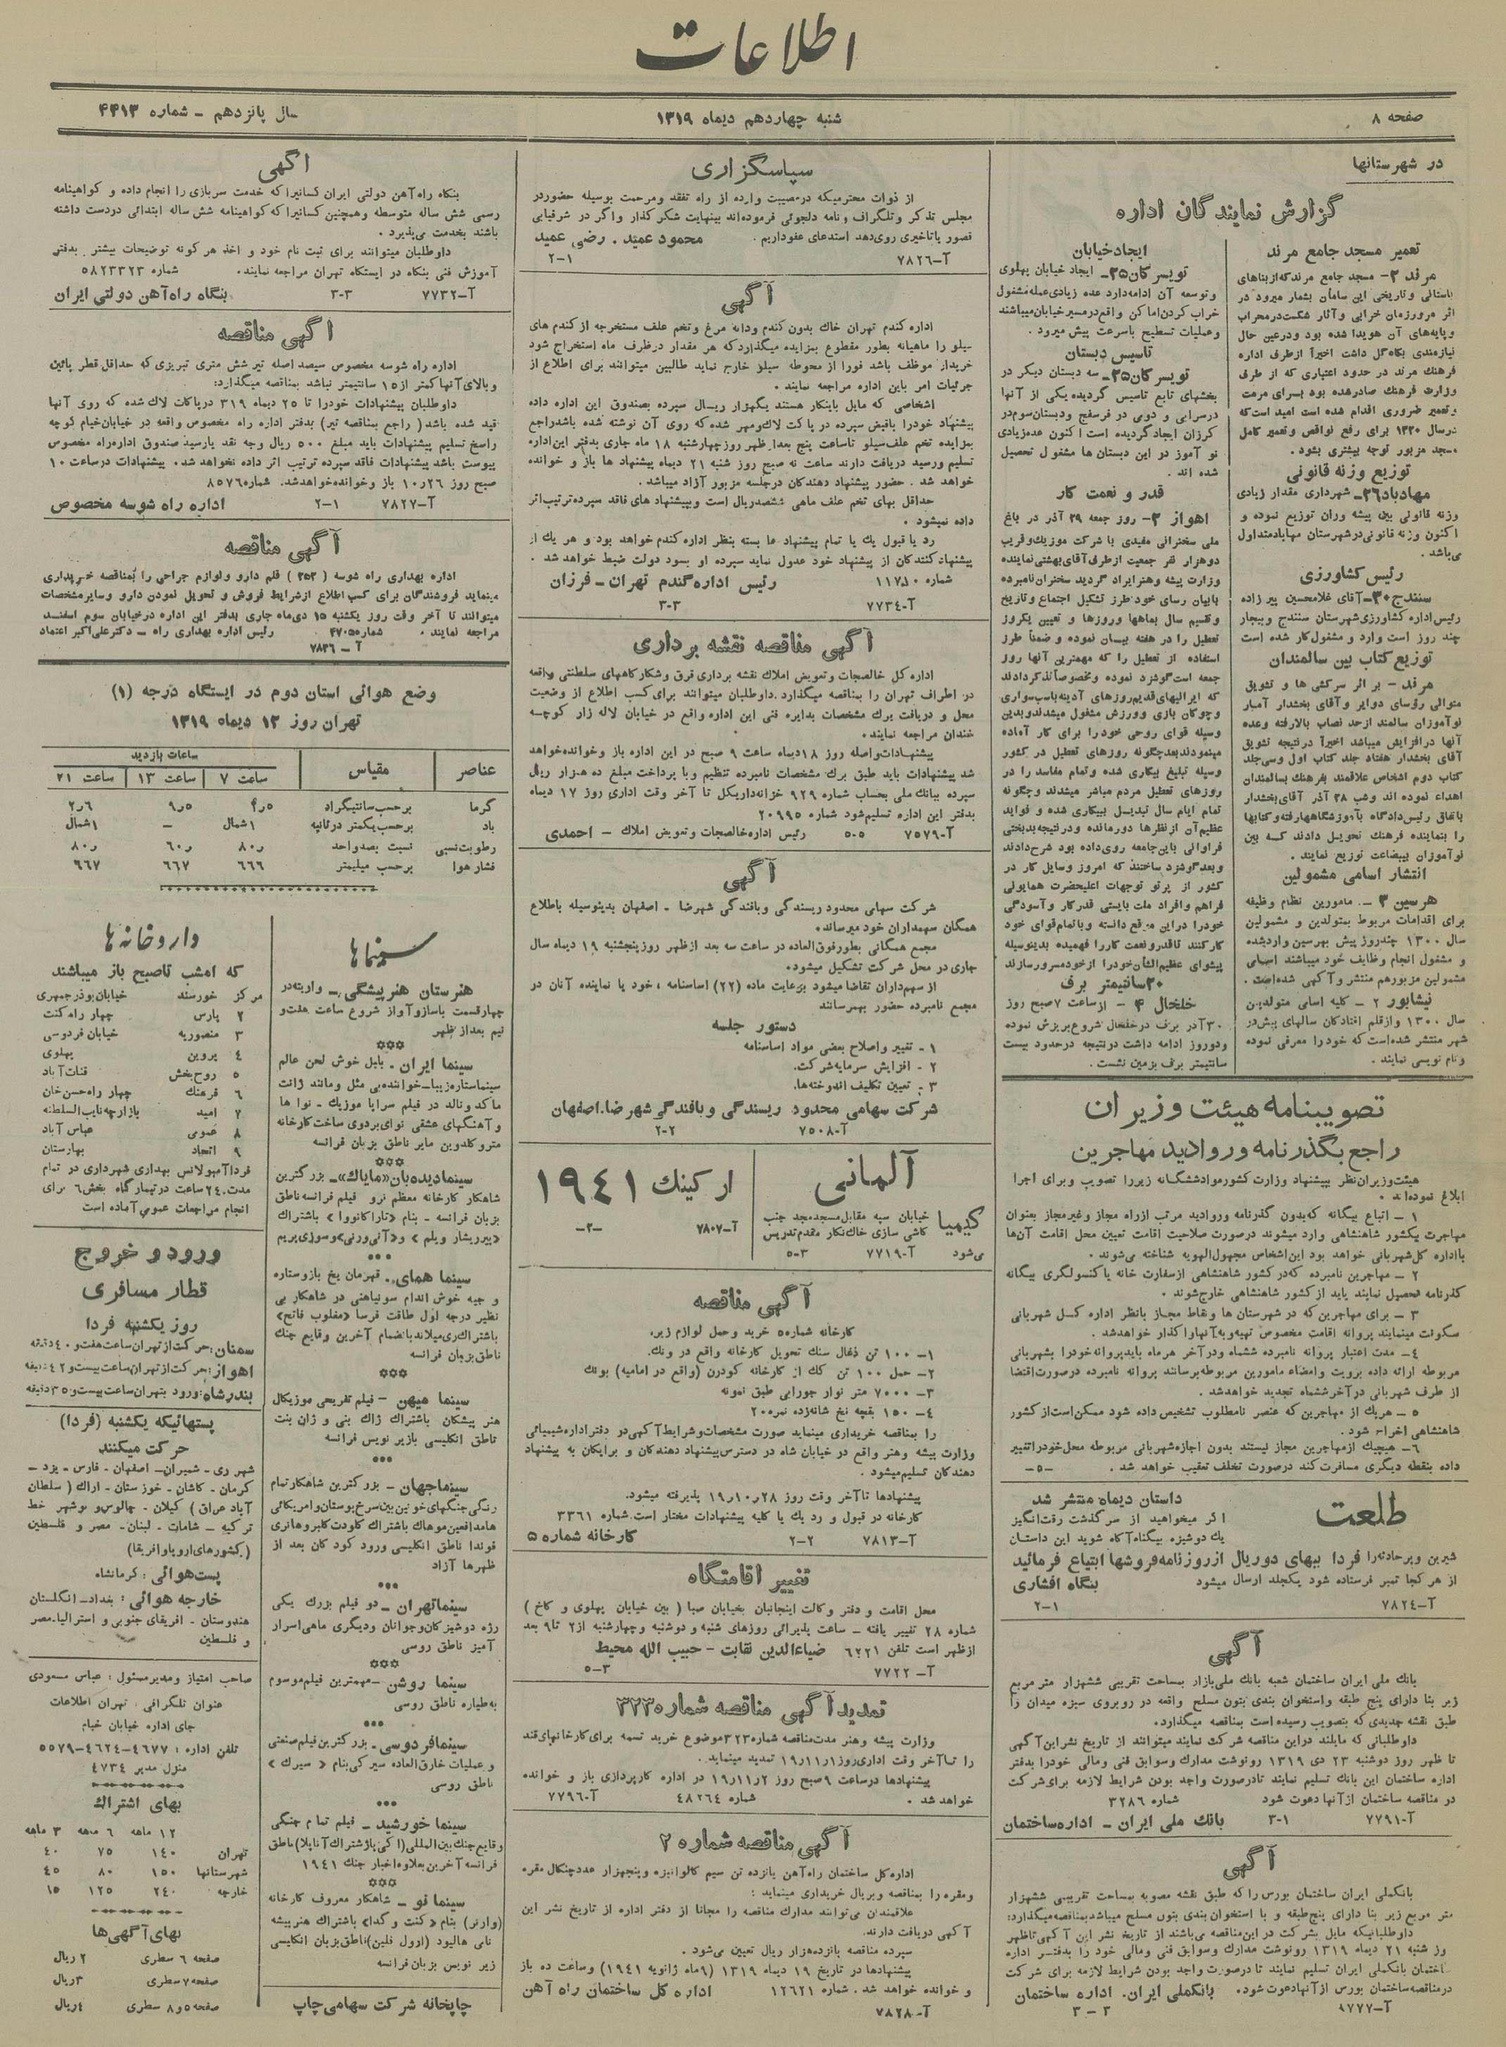 اطلاعات
صفحه ۸
شنبه چهاردهم دیماه ۱۳۱۹
سال پانزدهم - شماره ۴۴۱۳
در شهرستانها
گزارش نمایندگان اداره
تعمیر مسجد جامع مرند
مرند ۲- مسجد جامع مرند که از بناهای
باستانی و تاریخی این سامان بشمار میرود در
اثر مرور زمان خرابی و آثار شکست در محراب
و پایه‌های آن هویدا شده بود و در عین حال
نیازمندی بکاه گل داشت اخیراً از طرف اداره
فرهنگ مرند در حدود اعتباری که از طرف
وزارت فرهنگ صادر شده بود بسرای مرمت
و تعمیر ضروری اقدام شده است امید است که
در سال ۱۳۲۰ برای رفع نواقص و تعمیر کامل
مسجد مزبور توجه بیشتری بشود.
توزیع وزنه قانونی
مهاباد ۲۶- شهرداری مقدار زیادی
وزنه قانونی بین پیشه وران توزیع نموده و
اکنون وزنه قانونی در شهرستان مهاباد متداول
می‌باشد.
رئیس کشاورزی
سنندج ۳۰- آقای غلامحسین پیرزاده
رئیس اداره کشاورزی شهرستان سنندج و بیجار
چند روز است وارد و مشغول کار شده است
توزیع کتاب بین سالمندان
مرند - بر اثر سرکشی ها و تشویق
متوالی رؤسای دوایر و آقای بخشدار آمار
نوآموزان سالمند از حد نصاب بالا رفته و عده
آنها در افزایش میباشد اخیراً در نتیجه تشویق
آقای بخشدار هفتاد جلد کتاب اول و سی جلد
کتاب دوم اشخاص علاقمند بفرهنگ بسالمندان
اهداء نموده اند و شب ۲۸ آذر آقای بخشدار
باتفاق رئیس دادگاه بآموزشگاهها رفته و کتابها
را بنماینده فرهنگ تحویل دادند که بین
نوآموزان بیبضاعت توزیع نمایند.
انتشار اسامی مشمولین
هرسین ۳ - مامورین نظام وظیفه
برای اقدامات مربوط بمتولدین و مشمولین
سال ۱۳۰۰ چند روز پیش بهرسین وارد شده
و مشغول انجام وظایف خود میباشند اسامی
مشمولین مزبور هم منتشر و آگهی شده است.
نیشابور ۲ - کلیه اسامی متولدین
سال ۱۳۰۰ و از قلم افتادگان سالهای پیش در
شهر منتشر شده است که خود را معرفی نموده
و نام نویسی نمایند.
ایجاد خیابان
تویسرکان ۲۵- ایجاد خیابان پهلوی
و توسعه آن ادامه دارد عده زیادی عمله مشغول
خراب کردن اماکن واقع در مسیر خیابان میباشند
و عملیات تسطیح با سرعت پیش میرود.
تاسیس دبستان
تویسرکان ۲۵- سه دبستان دیگر در
بخشهای تابع تاسیس گردیده یکی از آنها
در سرابی و دوبی در فرسفج و دبستان سوم در
کرزان ایجاد گردیده است اکنون عده زیادی
نو آموز در این دبستان ها مشغول تحصیل
شده اند.
قدر و نعمت کار
اهواز ۲- روز جمعه ۲۹ آذر در باغ
ملی سخنرانی مفیدی با شرکت موزیک و قریب
دو هزار نفر جمعیت از طرف آقای بهشتی نماینده
وزارت پیشه و هنر ایراد گردید سخنران نامبرده
با بیان رسای خود طرز تشکیل اجتماع و تاریخ
و تقسیم سال بماهها و روزها و تعیین یکروز
تعطیل را در هفته بیسان نموده و ضمناً طرز
استفاده از تعطیل را که مهمترین آنها روز
جمعه است گوشزد نموده و مخصوصاً تذکر دادند
که ایرانیهای قدیم روزهای آدینه باسب سواری
و چوگان بازی و ورزش مشغول میشدند و بدین
وسیله قوای روحی خود را برای کار آماده
مینمودند بعد چگونه روزهای تعطیل در کشور
وسیله تبلیغ بیکاری شده و تمام مفاسد را در
روزهای تعطیل مردم مباشر میشدند و چگونه
تمام ایام سال تبدیل ببیکاری شده و فواید
عظیم آن از نظرها دور مانده و در نتیجه بدبختی
فراوانی باین جامعه روی داده بود شرح دادند
و بعد گوشزد ساختند که امروز وسایل کار در
کشور از پرتو توجهات اعلیحضرت همایونی
فراهم و افراد ملت بایستی قدر کار و آسودگی
خود را در این موقع دانسته و با تمام قوای خود
کار کنند تا قدر و نعمت کار را فهمیده بدینوسیله
پیشوای عظیم الشأن خود را از خود مسرور سازند
۲۰ سانتیمتر برف
خلخال ۴ - از ساعت ۷ صبح روز
۳۰ آذر برف در خلخال شروع بریزش نموده
و دو روز ادامه داشت در نتیجه در حدود بیست
سانتیمتر برف بزمین نشست.
تصویبنامه هیئت وزیران
راجع بگذرنامه و روادید مهاجرین
هیئت وزیران نظر بپیشنهاد وزارت کشور مواد ششگانه زیر را تصویب و برای اجرا
ابلاغ نموده اند.
۱ - اتباع بیگانه که بدون گذرنامه و روادید مرتب از راه مجاز و غیر مجاز بعنوان
مهاجرت بکشور شاهنشاهی وارد میشوند در صورت صلاحیت اقامت تعیین محل اقامت آن‌ها
با اداره کل شهربانی خواهد بود این اشخاص مجهول الهویه شناخته می‌شوند.
۲ - مهاجرین نامبرده که در کشور شاهنشاهی از سفارت خانه یا کنسولگری بیگانه
گذرنامه تحصیل نمایند باید از کشور شاهنشاهی خارج شوند.
۳ - برای مهاجرین که در شهرستان ها و نقاط مجاز بانظر اداره کل شهربانی
سکونت مینمایند پروانه اقامت مخصوص تهیه و به آنها واگذار خواهد شد.
۴- مدت اعتبار پروانه نامبرده ششماه و در آخر هر ماه باید پروانه خود را بشهربانی
مربوطه ارائه داده برویت و امضاء مامورین مربوطه برسانند پروانه نامبرده در صورت اقتضا
از طرف شهربانی در آخر ششماه تجدید خواهد شد.
۵ - هر یک از مهاجرین که عنصر نامطلوب تشخیص داده شود ممکن است از کشور
شاهنشاهی اخراج شود.
۶- هیچیک از مهاجرین مجاز نیستند بدون اجازه شهربانی مربوطه محل خود را تغییر
داده بنقطه دیگری مسافرت کند در صورت تخلف تعقیب خواهد شد. -۵-
طلعت
داستان دیماه منتشر شد
اگر میخواهید از سرگذشت رقت انگیز
یک دوشیزه بیگناه آگاه شوید این داستان
شیرین و پر حادثه را فردا ببهای دو ریال از روزنامه فروشها ابتیاع فرمائید
از هر کجا تمبر فرستاده شود یکجلد ارسال میشود بنگاه افشاری
آ-۷۸۲۴ ۲-۱
آگهی
بانک ملی ایران ساختمان شعبه بانک ملی بازار بمساحت تقریبی ششهزار متر مربع
زیر بنا دارای پنج طبقه و استخوان بندی بتون مسلح واقعه در روبروی سبزه میدان را
طبق نقشه جدیدی که بتصویب رسیده است بمناقصه میگذارد.
داوطلبانی که مایلند در این مناقصه شرکت نمایند میتوانند از تاریخ نشر این آگهی
تا ظهر روز دوشنبه ۲۳ دی ۱۳۱۹ رونوشت مدارک و سوابق فنی و مالی خود را بدفتر
اداره ساختمان این بانک تسلیم نمایند تا در صورت واجد بودن شرایط لازمه برای شرکت
در مناقصه ساختمان از آنها دعوت شود شماره ۳۲۸۶
آ-۷۷۹۱ ۳-۱ بانک ملی ایران - اداره ساختمان
آگهی
بانکملی ایران ساختمان بورس را که طبق نقشه مصوبه بمساحت تقریبی ششهزار
متر مربع زیر بنا دارای پنج طبقه و با استخوان بندی بتون مسلح میباشد بمناقصه میگذارد:
داوطلبانیکه مایل بشرکت در این مناقصه می‌باشند از تاریخ نشر این آگهی تا ظهر
روز شنبه ۲۱ دیماه ۱۳۱۹ رونوشت مدارک و سوابق فنی و مالی خود را بدفتر اداره
ساختمان بانکملی ایران تسلیم نمایند تا در صورت واجد بودن شرایط لازمه برای شرکت
در مناقصه ساختمان بورس از آنها دعوت شود. بانکملی ایران. اداره ساختمان
آ-۹۷۷۷ ۳ - ۳
سپاسگزاری
از ذوات محترمیکه در مصیبت وارده از راه تفقد و مرحمت بوسیله حضور در
مجلس تذکر و تلگراف و نامه دلجوئی فرموده‌اند بینهایت شکرگذار و اگر در شرفیابی
قصور یا تاخیری روی دهد استدعای عفو داریم. محمود عمید. رضی عمید
آ-۷۸۲۶ ۲-۱
آگهی
اداره گندم تهران خاک بدون گندم و دانه مرغ و تخم علف مستخرجه از گندم های
سیلو را ماهیانه بطور مقطوع بمزایده میگذارد که هر مقدار در ظرف ماه استخراج شود
خریدار موظف باشد فورا از محوطه سیلو خارج نماید طالبین میتوانند برای اطلاع از
جزئیات امر باین اداره مراجعه نمایند.
اشخاصی که مایل باینکار هستند یکهزار ریال سپرده بصندوق این اداره داده
پیشنهاد خود را باقبض سپرده در پاکت لاک و مهر شده که روی آن نوشته شده باشد راجع
بمزایده تخم علف سیلو تا ساعت پنج بعد از ظهر روز چهارشنبه ۱۸ ماه جاری بدفتر این اداره
تسلیم و رسید دریافت دارند ساعت نه صبح روز شنبه ۲۱ دیماه پیشنهاد ها باز و خوانده
خواهد شد. حضور پیشنهاد دهندگان در جلسه مزبور آزاد میباشد.
حداقل بهای تخم علف ماهی ششصد ریال است و بپیشنهاد های فاقد سپرده ترتیب اثر
داده نمیشود.
رد یا قبول یک یا تمام پیشنهاد ها بسته بنظر اداره گندم خواهد بود و هر یک از
پیشنهاد کنندگان از پیشنهاد خود عدول نماید سپرده او بسود دولت ضبط خواهد شد.
شماره ۱۱۷۵۰ رئیس اداره گندم تهران - فرزان
آ-۷۷۳۴ ۳-۳
آگهی مناقصه نقشه برداری
اداره کل خالصجات و تعویض املاک نقشه برداری قرق و شکارگاههای سلطنتی واقعه
در اطراف تهران را بمناقصه میگذارد. داوطلبان میتوانند برای کسب اطلاع از وضعیت
محل و دریافت برک مشخصات بدایره فنی این اداره واقع در خیابان لاله زار کوچه
خندان مراجعه نمایند.
پیشنهادات واصله روز ۱۸ دیماه ساعت ۹ صبح در این اداره باز و خوانده خواهد
شد پیشنهادات باید طبق برک مشخصات نامبرده تنظیم و با پرداخت مبلغ ده هزار ریال
سپرده ببانک ملی بحساب شماره ۹۲۹ خزانه داریکل تا آخر وقت اداری روز ۱۷ دیماه
بدفتر این اداره تسلیم شود شماره ۲۰۹۹۵
آ-۷۵۷۹ ۵-۵ رئیس اداره خالصجات و تعویض املاک - احمدی
آگهی
شرکت سهامی محدود ریسندگی و بافندگی شهرضا - اصفهان بدینوسیله باطلاع
همگان سهمداران خود میرساند.
مجمع همگانی بطور فوق العاده در ساعت سه بعد از ظهر روز پنجشنبه ۱۹ دیماه سال
جاری در محل شرکت تشکیل میشود.
از سهم داران تقاضا میشود برعایت ماده (۲۲) اساسنامه، خود یا نماینده آنان در
مجمع نامبرده حضور بهمرسانند
دستور جلسه
۱ - تغییر و اصلاح بعضی مواد اساسنامه
۲ - افزایش سرمایه شرکت.
۳ - تعیین تکلیف اندوخته‌ها.
شرکت سهامی محدود ریسندگی و بافندگی شهرضا. اصفهان
آ-۷۵۰۸ ۲-۲
آلمانی
کیمیا خیابان سپه مقابل مسجد مجد جنب
کاشی سازی خاک نگار مقدم تدریس
می‌شود آ-۷۷۱۹ ۵-۳
ارکینک ۱۹۴۱
آ-۷۸۰۷ -۲-
آگهی مناقصه
کارخانه شماره ۵ خرید و حمل لوازم زیر،
۱- ۱۰۰ تن ذغال سنک تحویل کارخانه واقع در ونک.
۲- حمل ۱۰۰ تن کک از کارخانه کودرن (واقع در امامیه) بونک
۳- ۷۰۰۰ متر نوار جورابی طبق نمونه
۴- ۱۵۰ بقچه نخ شانه زده نمره ۲۰
را بمناقصه خریداری مینماید صورت مشخصات و شرایط آگهی در دفتر اداره شیمیائی
وزارت پیشه و هنر واقع در خیابان شاه در دسترس پیشنهاد دهندگان و برایگان به پیشنهاد
دهندگان تسلیم میشود.
پیشنهادها تا آخر وقت روز ۲۸ر۱۰ر۱۹ پذیرفته میشود.
کارخانه در قبول و رد یک یا کلیه پیشنهادات مختار است. شماره ۳۳۶۱
آ-۷۸۱۳ ۲-۲ کارخانه شماره ۵
تغییر اقامتگاه
محل اقامت و دفتر وکالت اینجانبان بخیابان صبا (بین خیابان پهلوی و کاخ)
شماره ۲۸ تغییر یافته - ساعت پذیرائی روزهای شنبه و دوشنبه و چهارشنبه از ۲ تا ۹ بعد
از ظهر است تلفن ۶۲۲۱ ضیاءالدین نقابت - حبیب الله محیط
آ- ۷۷۲۲ ۵-۳
تمدید آگهی مناقصه شماره ۳۲۳
وزارت پیشه و هنر مدت مناقصه شماره ۳۲۳ موضوع خرید تسمه برای کارخانهای قند
را تا آخر وقت اداری روز ۱ر۱۱ر۱۹ تمدید مینماید.
پیشنهادها در ساعت ۹ صبح روز ۲ر۱۱ر۱۹ در اداره کارپردازی باز و خوانده
خواهد شد. شماره ۴۸۲۶۴ آ-۷۷۹۶
آگهی مناقصه شماره ۲
اداره کل ساختمان راه آهن پانزده تن سیم گالوانیزه و پنجهزار عدد چنگال مقره
و مقره را بمناقصه و بریال خریداری مینماید:
علاقمندان می‌توانند مدارک مناقصه را مجانا از دفتر اداره از تاریخ نشر این
آگهی دریافت دارند.
سپرده مناقصه پانزده هزار ریال تعیین می‌شود.
پیشنهادها در تاریخ ۱۹ دیماه ۱۳۱۹ (۹ ماه ژانویه ۱۹۴۱) و ساعت ده باز
و خوانده خواهد شد. شماره ۱۲۶۲۱ اداره کل ساختمان راه آهن
آ-۷۸۲۸
آگهی
بنگاه راه آهن دولتی ایران کسانیرا که خدمت سربازی را انجام داده و گواهینامه
رسمی شش ساله متوسطه و همچنین کسانیرا که گواهینامه شش ساله ابتدائی در دست داشته
باشند بخدمت می‌پذیرد.
داوطلبان میتوانند برای ثبت نام خود و اخذ هر گونه توضیحات بیشتر بدفتر
آموزش فنی بنگاه در ایستگاه تهران مراجعه نمایند. شماره ۵۸۲۳۳۲۳
آ-۷۷۳۲ ۳-۳ بنگاه راه آهن دولتی ایران
آگهی مناقصه
اداره راه شوسه مخصوص سیصد اصله تیر شش متری تبریزی که حداقل قطر پائین
و بالای آنها کمتر از ۱۵ سانتیمتر نباشد بمناقصه میگذارد:
داوطلبان پیشنهادات خود را تا ۲۵ دیماه ۳۱۹ در پاکت لاک شده که روی آنها
قید شده باشد (راجع بمناقصه تیر) بدفتر اداره راه مخصوص واقعه در خیابان خیام کوچه
راسخ تسلیم پیشنهادات باید مبلغ ۵۰۰ ریال وجه نقد یا رسید صندوق اداره راه مخصوص
پیوست باشد پیشنهادات فاقد سپرده ترتیب اثر داده نخواهد شد. پیشنهادات در ساعت ۱۰
صبح روز ۲۶ر۱۰ باز و خوانده خواهد شد. شماره ۸۵۷۶
آ-۷۸۲۷ ۲-۱ اداره راه شوسه مخصوص
آگهی مناقصه
اداره بهداری راه شوسه (۲۵۳) قلم دارو و لوازم جراحی را بمناقصه خریداری
مینماید فروشندگان برای کسب اطلاع از شرایط فروش و تحویل نمودن دارو و سایر مشخصات
میتوانند تا آخر وقت روز یکشنبه ۱۵ دی ماه جاری بدفتر این اداره در خیابان سوم اسفند
مراجعه نمایند. شماره ۴۷۰۵ رئیس اداره بهداری راه - دکتر علی اکبر اعتماد
آ - ۷۸۳۶
وضع هوائی استان دوم در ایستگاه درجه (۱)
تهران روز ۱۳ دیماه ۱۳۱۹
عناصر مقیاس ساعات بازدید
ساعت ۷ ساعت ۱۳ ساعت ۲۱
گرما برحسب سانتیگراد ۴ر۵ ۹ر۵ ۲ر۶
باد برحسب یکمتر در ثانیه ۱ شمال - ۱ شمال
رطوبت نسبی نسبت بصد واحد ۸۰ر ۶۰ر ۸۰ر
فشار هوا برحسب میلیمتر ۶۶۶ ۶۶۷ ۶۶۷
سینماها
هنرستان هنر پیشگی - واریته در
چهار قسمت با ساز و آواز شروع ساعت هفت و
نیم بعد از ظهر
سینما ایران. بابل خوش لحن عالم
سینما ستاره زیبا - خواننده بی مثل و مانند ژانت
ماکدونالد در فیلم سراپا موزیک - نوا ها
و آهنگهای عشقی نوای بردوی ساخت کارخانه
مترو گلدوین مایر ناطق بزبان فرانسه
سینما دیده بان «مایاک» - بزرگترین
شاهکار کارخانه معظم نرو فیلم فرانسه ناطق
بزبان فرانسه - بنام «تاراکانووا» باشتراک
«پیریشار ویلم» و «آنی ورنی» و سوزی پریم
سینما همای. قهرمان یخ بازو ستاره
و جیه خوش اندام سونیاهنی در شاهکار بی
نظیر درجه اول طاقت فرسا «مغلوب فاتح»
باشتراک ری میلاند بانضمام آخرین وقایع جنک
ناطق بزبان فرانسه
سینما میهن - فیلم تفریحی موزیکال
هنر پیشگان باشتراک ژاک بنی و ژان بنت
ناطق انگلیسی بازیر نویس فرانسه
سینما جهان - بزرگترین شاهکار تمام
رنگی جنگهای خونین بین سرخ پوستان و امریکائی
ها مدافعین موهاک باشتراک کلودت کلبر و هانری
فوندا ناطق انگلیسی ورود کودکان بعد از
ظهرها آزاد
سینما تهران - دو فیلم بزرک یکی
رژه دوشیزگان و جوانان و دیگری ماهی اسرار
آمیز ناطق روسی
سینما روشن - مهمترین فیلم موسوم
به طیاره ناطق روسی
سینما فردوسی - بزرگترین فیلم صنعتی
و عملیات خارق العاده سیرکی بنام «سیرک»
ناطق روسی
سینما خورشید - فیلم تمام جنگی
وقایع جنک بین المللی (اکی باز شتراک آناپلا) ناطق
فرانسه آخرین بعلاوه اخبار جنک ۱۹۴۱
سینما نو - شاهکار معروف کارخانه
(وارنر) بنام «کنت و گدا» باشتراک هنرپیشه
نامی هالیود (ارول فلین) ناطق بزبان انگلیسی
زیر نویس بزبان فرانسه
چاپخانه شرکت سهامی چاپ
داروخانه ها
که امشب تا صبح باز میباشند
مرکز خورسند خیابان بوذرجمهری
۲ پارس چهار راه کنت
۳ منصوریه خیابان فردوسی
۴ پروین پهلوی
۵ روح بخش قنات آباد
۶ فرهنک چهار راه حسن خان
۷ امید بازارچه نایب السلطنه
۸ عمومی عباس آباد
۹ اتحاد بهارستان
فردا آمبولانس بهداری شهرداری در تمام
مدت ۲۴ ساعت در تیمارگاه بخش ۶ برای
انجام مراجعات عمومی آماده است
ورود و خروج
قطار مسافری
روز یکشنبه فردا
سمنان: حرکت از تهران ساعت هفت و ۴۰ دقیقه
اهواز: حرکت از تهران ساعت بیست و ۴۲ دقیقه
بندرشاه: ورود بتهران ساعت بیست و ۳۵ دقیقه
پستهائیکه یکشنبه (فردا)
حرکت میکنند
شهر ری - شمیران - اصفهان - فارس - یزد -
کرمان - کاشان - خوزستان - اراک (سلطان
آباد عراق) گیلان - چالوس و نوشهر خط
ترکیه - شامات - لبنان - مصر و فلسطین
(کشورهای اروپا و افریقا)
پست هوائی: کرمانشاه
خارجه هوائی: بغداد - انگلستان
هندوستان - افریقای جنوبی و استرالیا. مصر
و فلسطین
صاحب امتیاز و مدیر مسئول: عباس مسعودی
عنوان تلگرافی: تهران اطلاعات
جای اداره خیابان خیام
تلفن اداره: ۴۶۷۷-۴۶۲۴-۵۵۷۹
منزل مدیر ۴۷۳۴
بهای اشتراک
۱۲ ماهه ۶ ماهه ۳ ماهه
تهران ۱۴۰ ۷۵ ۴۰
شهرستانها ۱۵۰ ۸۰ ۴۵
خارجه ۲۴۰ ۱۲۵ ۶۵
بهای آگهی ها
صفحه ۶ سطری ۲ ریال
صفحه ۷ سطری ۳ ریال
صفحه ۵ و ۸ سطری ۴ ریال